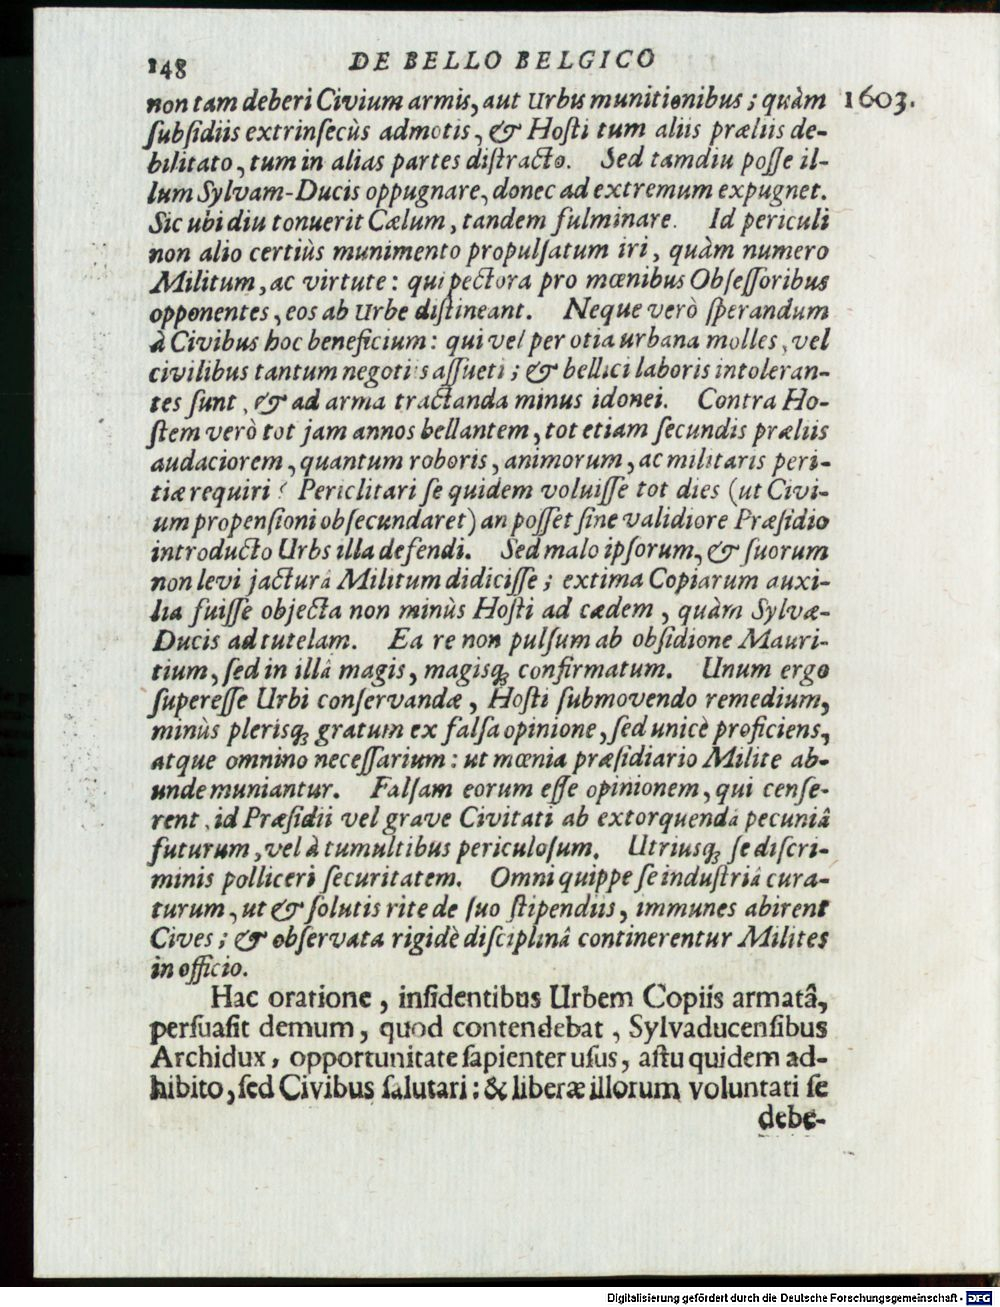 148 DE BELLO BELGICO
non tam deberi Civium armis, aut Urbis munitionibus; quàm 1603.
ſubſidiis extrinſecùs admotis, & Hoſti tum aliis præliis de-
bilitato, tum in alias partes diſtracto. Sed tamdiu poſſe il-
lum Sylvam-Ducis oppugnare, donec ad extremum expugnet.
Sic ubi diu tonuerit Cælum, tandem fulminare. Id periculi
non alio certiùs munimento propulſatum iri, quàm numero
Militum, ac virtute: qui pectora pro mœnibus Obſeſſoribus
opponentes, eos ab Urbe diſtineant. Neque verò ſperandum
à Civibus hoc beneficium: qui vel per otia urbana molles, vel
civilibus tantum negotiis aſſueti; & bellici laboris intoleran-
tes ſunt, & ad arma tractanda minus idonei. Contra Ho-
ſtem verò tot jam annos bellantem, tot etiam ſecundis præliis
audaciorem, quantum roboris, animorum, ac militaris peri-
tiæ requiri? Periclitari ſe quidem voluiſſe tot dies (ut Civi-
um propenſioni obſecundaret) an poſſet ſine validiore Præſidio
introducto Urbs illa defendi. Sed malo ipſorum, & ſuorum
non levi jacturâ Militum didiciſſe; extima Copiarum auxi-
lia fuiſſe objecta non minùs Hoſti ad cædem, quàm Sylvæ-
Ducis ad tutelam. Ea re non pulſum ab obſidione Mauri-
tium, ſed in illâ magis, magisq́ꝫ confirmatum. Unum ergo
ſupereſſe Urbi conſervandæ, Hoſti ſubmovendo remedium,
minùs plerisqꝫ gratum ex falſa opinione, ſed unicè proficiens,
atque omnino neceſſarium: ut mœnia præſidiario Milite ab-
unde muniantur. Falſam eorum eſſe opinionem, qui cenſe-
rent, id Præſidii vel grave Civitati ab extorquendâ pecuniâ
futurum, vel à tumultibus periculoſum. Utriusqꝫ ſe diſcri-
minis polliceri ſecuritatem. Omni quippe ſe induſtriâ cura-
turum, ut & ſolutis rite de ſuo ſtipendiis, immunes abirent
Cives; & obſervata rigidè diſciplinâ continerentur Milites
in officio.
Hac oratione, inſidentibus Urbem Copiis armatâ,
perſuaſit demum, quod contendebat, Sylvaducenſibus
Archidux, opportunitate ſapienter uſus, aſtu quidem ad-
hibito, ſed Civibus ſalutari: & liberæ illorum voluntati ſe
debe-
Digitalisierung gefördert durch die Deutsche Forschungsgemeinschaft - DFG